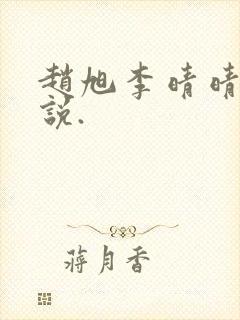 趙旭李晴晴
說.
蔣月香